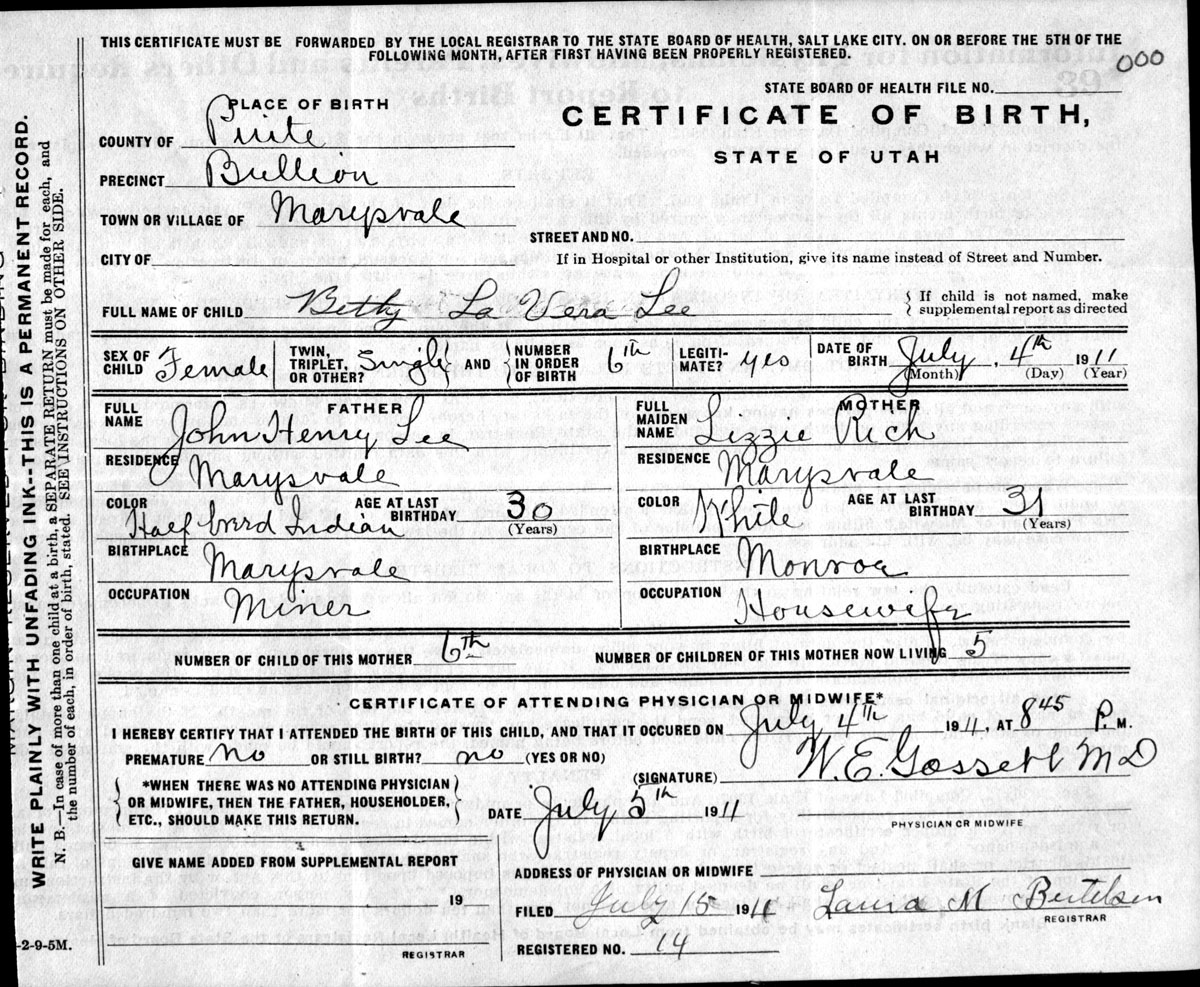 THIS CERTIFICATE MUST BE FORWARDED BY THE LOCAL REGISTRAR TO THE STATE BOARD OF HEALTH, SALT LAKE CITY. ON OR BEFORE THE 5TH OF THE
FOLLOWING MONTH, AFTER FIRST HAVING BEEN PROPERLY REGISTERED.
000
STATE BOARD OF HEALTH FILE NO.
PLACE OF BIRTH
CERTIFICATE OF BIRTH,
STATE OF UTAH
COUNTY OF Piute
PRECINCT Bullion
TOWN OR VILLAGE OF Marysvale
STREET AND NO.
CITY OF
If in Hospital or other Institution, give its name instead of Street and Number.
FULL NAME OF CHILD Betty La Vera Lee
If child is not named, make
supplemental report as directed
SEX OF CHILD Female
TWIN, TRIPLET, OR OTHER? Single AND NUMBER IN ORDER OF BIRTH 6th
LEGITIMATE? yes
DATE OF BIRTH July, 4th 1911
(Month) (Day) (Year)
FATHER
FULL NAME John Henry Lee
RESIDENCE Marysvale
COLOR Half breed Indian
AGE AT LAST BIRTHDAY 30 (Years)
BIRTHPLACE Marysvale
OCCUPATION Miner
MOTHER
FULL MAIDEN NAME Lizzie Rich
RESIDENCE Marysvale
COLOR White
AGE AT LAST BIRTHDAY 31 (Years)
BIRTHPLACE Monroe
OCCUPATION Housewife
NUMBER OF CHILD OF THIS MOTHER 6th
NUMBER OF CHILDREN OF THIS MOTHER NOW LIVING 5
CERTIFICATE OF ATTENDING PHYSICIAN OR MIDWIFE*
I HEREBY CERTIFY THAT I ATTENDED THE BIRTH OF THIS CHILD, AND THAT IT OCCURED ON July 4th 1911, AT 845 P. M.
PREMATURE no OR STILL BIRTH? no (YES OR NO)
(SIGNATURE) W. E. Gossett M D
PHYSICIAN OR MIDWIFE
*WHEN THERE WAS NO ATTENDING PHYSICIAN
OR MIDWIFE, THEN THE FATHER, HOUSEHOLDER,
ETC., SHOULD MAKE THIS RETURN.
DATE July 5th 1911
GIVE NAME ADDED FROM SUPPLEMENTAL REPORT
19
REGISTRAR
ADDRESS OF PHYSICIAN OR MIDWIFE
FILED July 15 1911 Laura M Bertelsen
REGISTRAR
REGISTERED NO. 14
WRITE PLAINLY WITH UNFADING INK--THIS IS A PERMANENT RECORD.
N. B.—In case of more than one child at a birth, a SEPARATE RETURN must be made for each, and
the number of each, in order of birth, stated. SEE INSTRUCTIONS ON OTHER SIDE.
-2-9-5M.